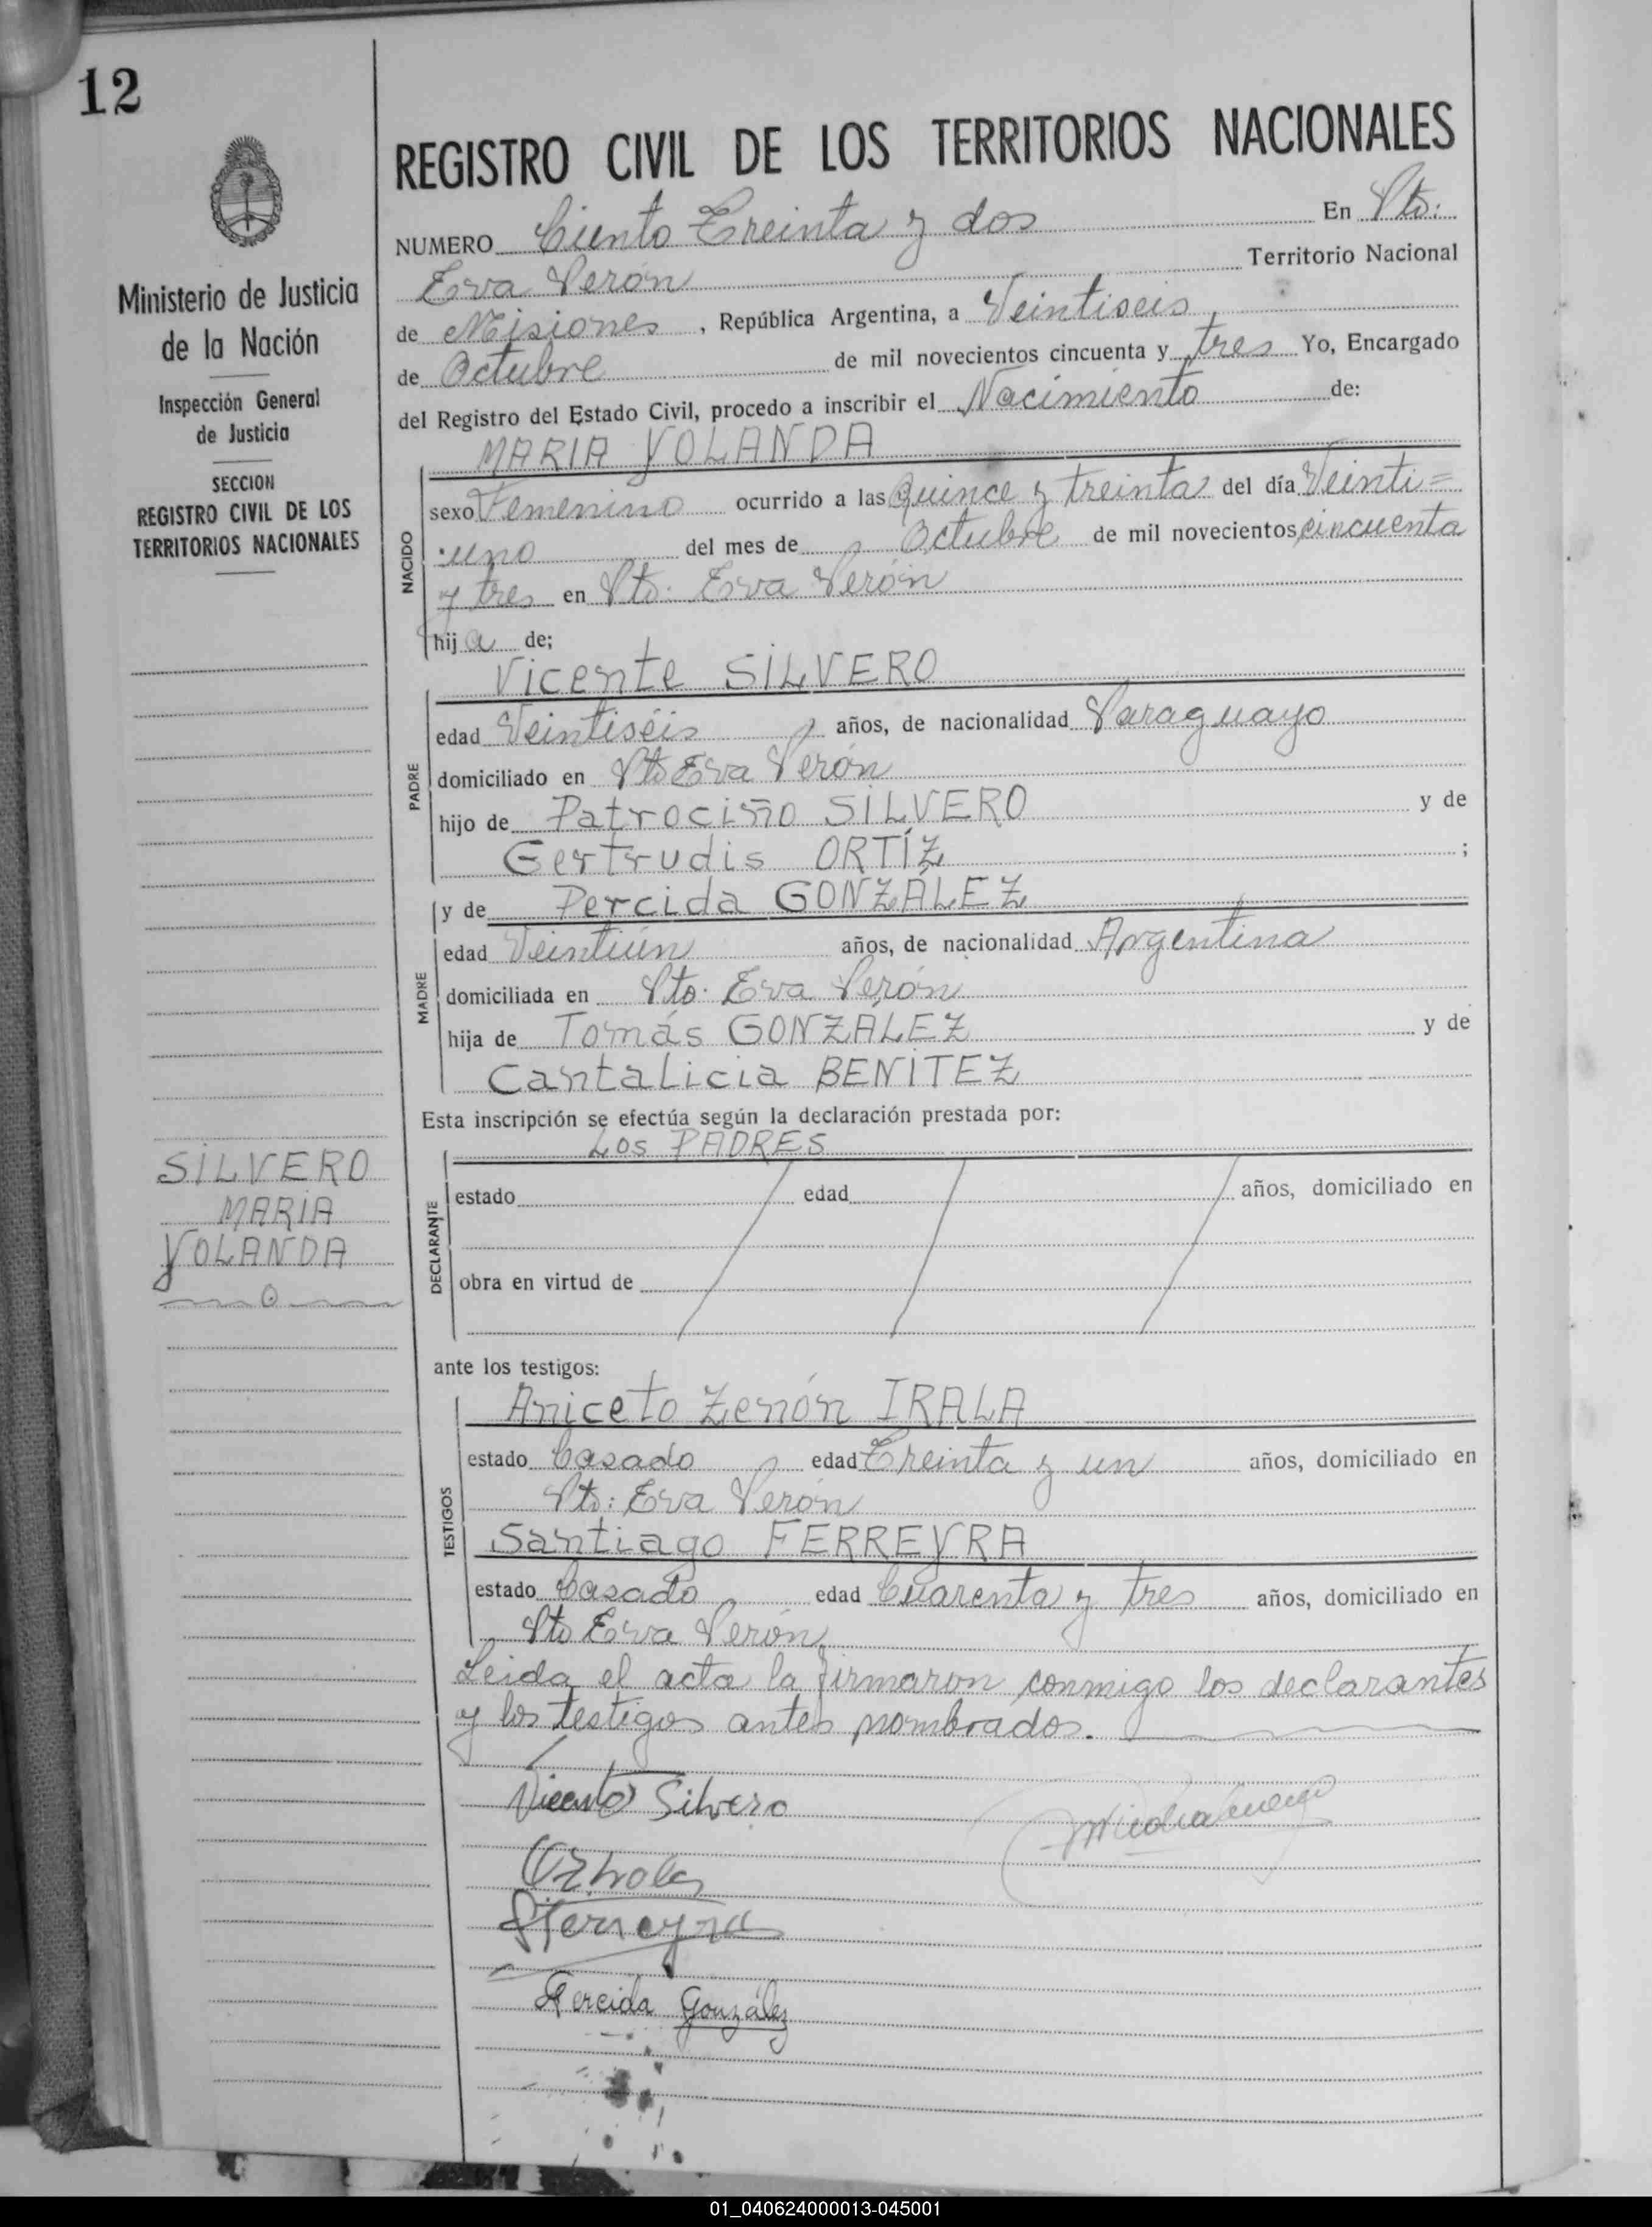 12
Ministerio de Justicia
de la Nación
Inspección General
de Justicia
SECCION
REGISTRO CIVIL DE LOS
TERRITORIOS NACIONALES
SILVERO
MARIA
YOLANDA
REGISTRO CIVIL DE LOS TERRITORIOS NACIONALES
NUMERO Ciento Treinta y dos En Pto:
Eva Perón Territorio Nacional
de Misiones, República Argentina, a Veintiseis
de Octubre de mil novecientos cincuenta y tres Yo, Encargado
del Registro del Estado Civil, procedo a inscribir el Nacimiento de:
MARIA YOLANDA
NACIDO
sexo Femenino ocurrido a las Quince y treinta del día Veinti=
:uno del mes de Octubre de mil novecientos cincuenta
y tres en Pto: Eva Perón
hija de;
Vicente SILVERO
PADRE
edad Veintiséis años, de nacionalidad Paraguayo
domiciliado en Pto Eva Perón
hijo de Patrociño SILVERO y de
Gertrudis ORTÍZ ;
y de Percida GONZÁLEZ
MADRE
edad Veintiún años, de nacionalidad Argentina
domiciliada en Pto. Eva Perón
hija de Tomás GONZÁLEZ y de
Cantalicia BENITEZ
Esta inscripción se efectúa según la declaración prestada por:
Los PADRES
DECLARANTE
estado edad años, domiciliado en
obra en virtud de
ante los testigos:
Aniceto Zenón IRALA
TESTIGOS
estado Casado edad Treinta y un años, domiciliado en
Pto: Eva Perón
Santiago FERREYRA
estado Casado edad Cuarenta y tres años, domiciliado en
Pto Eva Perón
Leida el acta la firmaron conmigo los declarantes
y los testigos antes nombrados.
Vicente Silvero
SFerreyra
Percida González
01_040624000013-045001